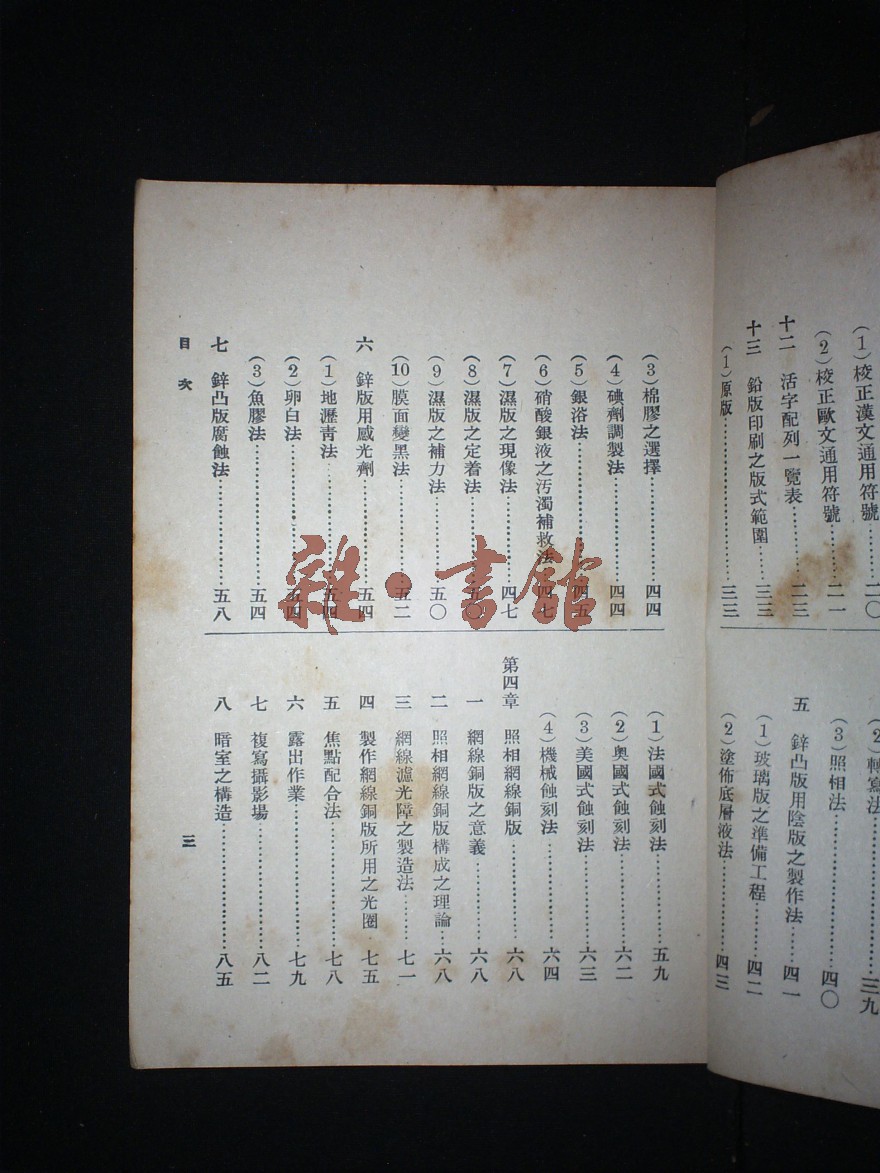 (1)校正漢文通用符號……二〇
(2)校正歐文通用符號……二一
十二 活字配列一覽表……二三
十三 鉛版印刷之版式範圍……三三
(1)原版……三三
(2)轉寫法……三九
(3)照相法……四〇
五 鋅凸版用陰版之製作法……四一
(1)玻璃版之準備工程……四二
(2)塗佈底層液法……四三
(3)棉膠之選擇……四四
(4)碘劑調製法……四四
(5)銀浴法……四五
(6)硝酸銀液之汚濁補救法……四七
(7)濕版之現像法……四七
(8)濕版之定着法……五〇
(9)濕版之補力法……五〇
(10)膜面變黑法……五二
六 鋅版用感光劑……五四
(1)地瀝青法……五四
(2)卵白法……五四
(3)魚膠法……五四
七 鋅凸版腐蝕法……五八
(1)法國式蝕刻法……五九
(2)奧國式蝕刻法……六二
(3)美國式蝕刻法……六三
(4)機械蝕刻法……六四
第四章 照相網線銅版……六八
一 網線銅版之意義……六八
二 照相網線銅版構成之理論……六八
三 網線濾光障之製造法……七一
四 製作網線銅版所用之光圈……七五
五 焦點配合法……七八
六 露出作業……七九
七 複寫攝影場……八二
八 暗室之構造……八五
目次
三
雜·書館